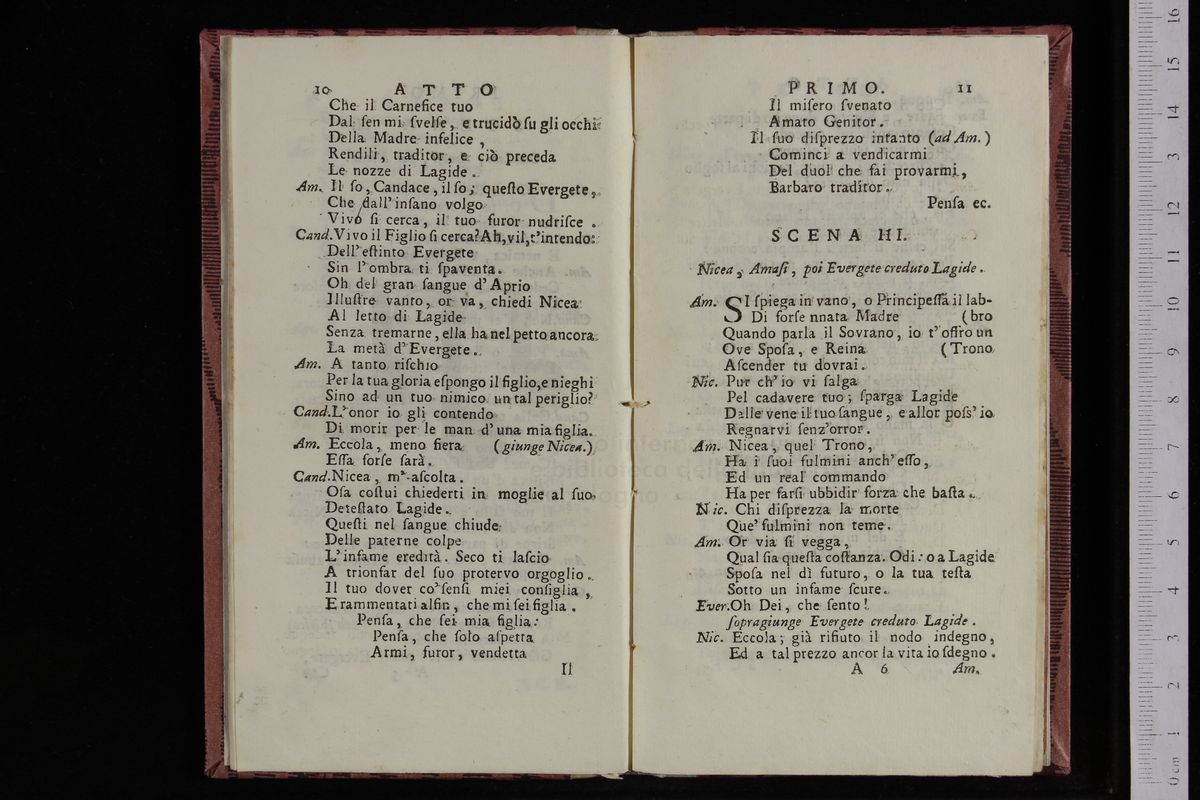 10 ATTO
Che il Carnefice tuo
Dal ſen mi ſvelſe, e trucidò ſu gli occhi
Della Madre infelice,
Rendili, traditor, e ciò preceda
Le nozze di Lagide.
Am. Il ſo, Candace, il ſo; queſto Evergete,
Che dall'inſano volgo
Vivo ſi cerca, il tuo furor nudriſce.
Cand. Vivo il Figlio ſi cerca? Ah, vil, t'intendo:
Dell'eſtinto Evergete
Sin l'ombra ti ſpaventa.
Oh del gran ſangue d'Aprio
Illuſtre vanto, or va, chiedi Nicea
Al letto di Lagide
Senza tremarne, ella ha nel petto ancora
La metà d'Evergete.
Am. A tanto riſchio
Per la tua gloria eſpongo il figlio, e nieghi
Sino ad un tuo nimico un tal periglio?
Cand. L'onor io gli contendo
Di morir per le man d'una mia figlia.
Am. Eccola, meno fiera (giunge Nicea.)
Eſſa forſe ſarà.
Cand. Nicea, m'aſcolta.
Oſa coſtui chiederti in moglie al ſuo
Deteſtato Lagide.
Queſti nel ſangue chiude
Delle paterne colpe
L'infame eredità. Seco ti laſcio
A trionfar del ſuo protervo orgoglio.
Il tuo dover co'ſenſi miei conſiglia,
E rammentati alfin, che mi ſei figlia.
Penſa, che ſei mia figlia:
Penſa, che ſolo aſpetta
Armi, furor, vendetta
Il
PRIMO. 11
Il miſero ſvenato
Amato Genitor.
Il ſuo diſprezzo intanto (ad Am.)
Cominci a vendicarmi
Del duol che fai provarmi,
Barbaro traditor.
Penſa ec.
SCENA III.
Nicea, Amaſi, poi Evergete creduto Lagide.
Am. SI ſpiega in vano, o Principeſſa il lab-
Di forſe nnata Madre (bro
Quando parla il Sovrano, io t'offro un
Ove Spoſa, e Reina (Trono
Aſcender tu dovrai.
Nic. Pur ch'io vi ſalga
Pel cadavere tuo; ſparga Lagide
Dalle vene il tuo ſangue, e allor poſs'io
Regnarvi ſenz'orror.
Am. Nicea, quel Trono,
Ha i ſuoi fulmini anch'eſſo,
Ed un real commando
Ha per farſi ubbidir forza che baſta.
Nic. Chi diſprezza la morte
Que'fulmini non teme.
Am. Or via ſi vegga,
Qual ſia queſta coſtanza. Odi: o a Lagide
Spoſa nel dì futuro, o la tua teſta
Sotto un infame ſcure.
Ever. Oh Dei, che ſento!
ſopragiunge Evergete creduto Lagide.
Nic. Eccola; già rifiuto il nodo indegno,
Ed a tal prezzo ancor la vita io ſdegno.
A 6 Am.
16
15
14
13
12
11
10
9
8
7
6
5
4
3
2
1
0 cm